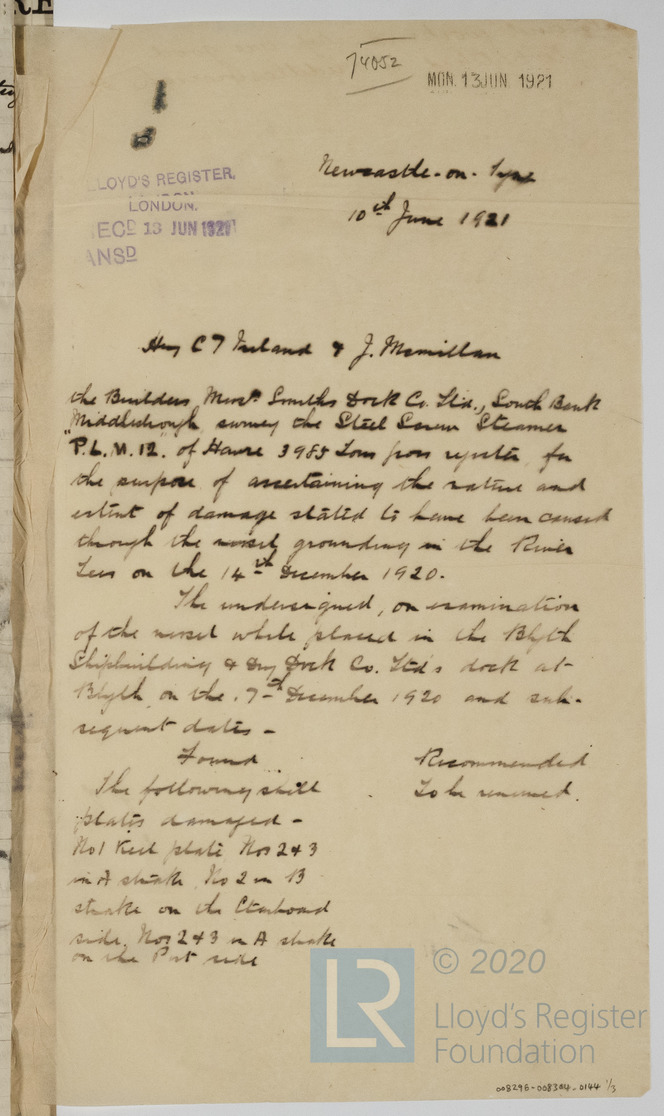 RE
74052
MON. 13 JUN. 1921
LLOYD'S REGISTER,
LONDON.
REC^D 13 JUN 1921
ANS^D
Newcastle-on-Tyne
10th June 1921
C T Ireland & J. Mcmillan
the Builders, Messrs. Smiths Dock Co. Ltd., South Bank
Middlesbrough survey the Steel Screw Steamer
"P.L.M. 12." of Havre 3985 Tons gross register, for
the purpose of ascertaining the nature and
extent of damage stated to have been caused
through the vessel grounding in the River
Tees on the 14th December 1920.
The undersigned, on examination
of the vessel while placed in the Blyth
Shipbuilding & Dry Dock Co. Ltd's dock at
Blyth, on the 17th December 1920 and sub-
sequent dates -
Found Recommended
The following shell To be renewed.
plates damaged -
No 1 Keel plate, Nos 2 & 3
in A strake, No 2 in B
strake on the Starboard
side, Nos 2 & 3 in A strake
on the Port side
LR
© 2020
Lloyd's Register
Foundation
008296-008304-0144 1/3